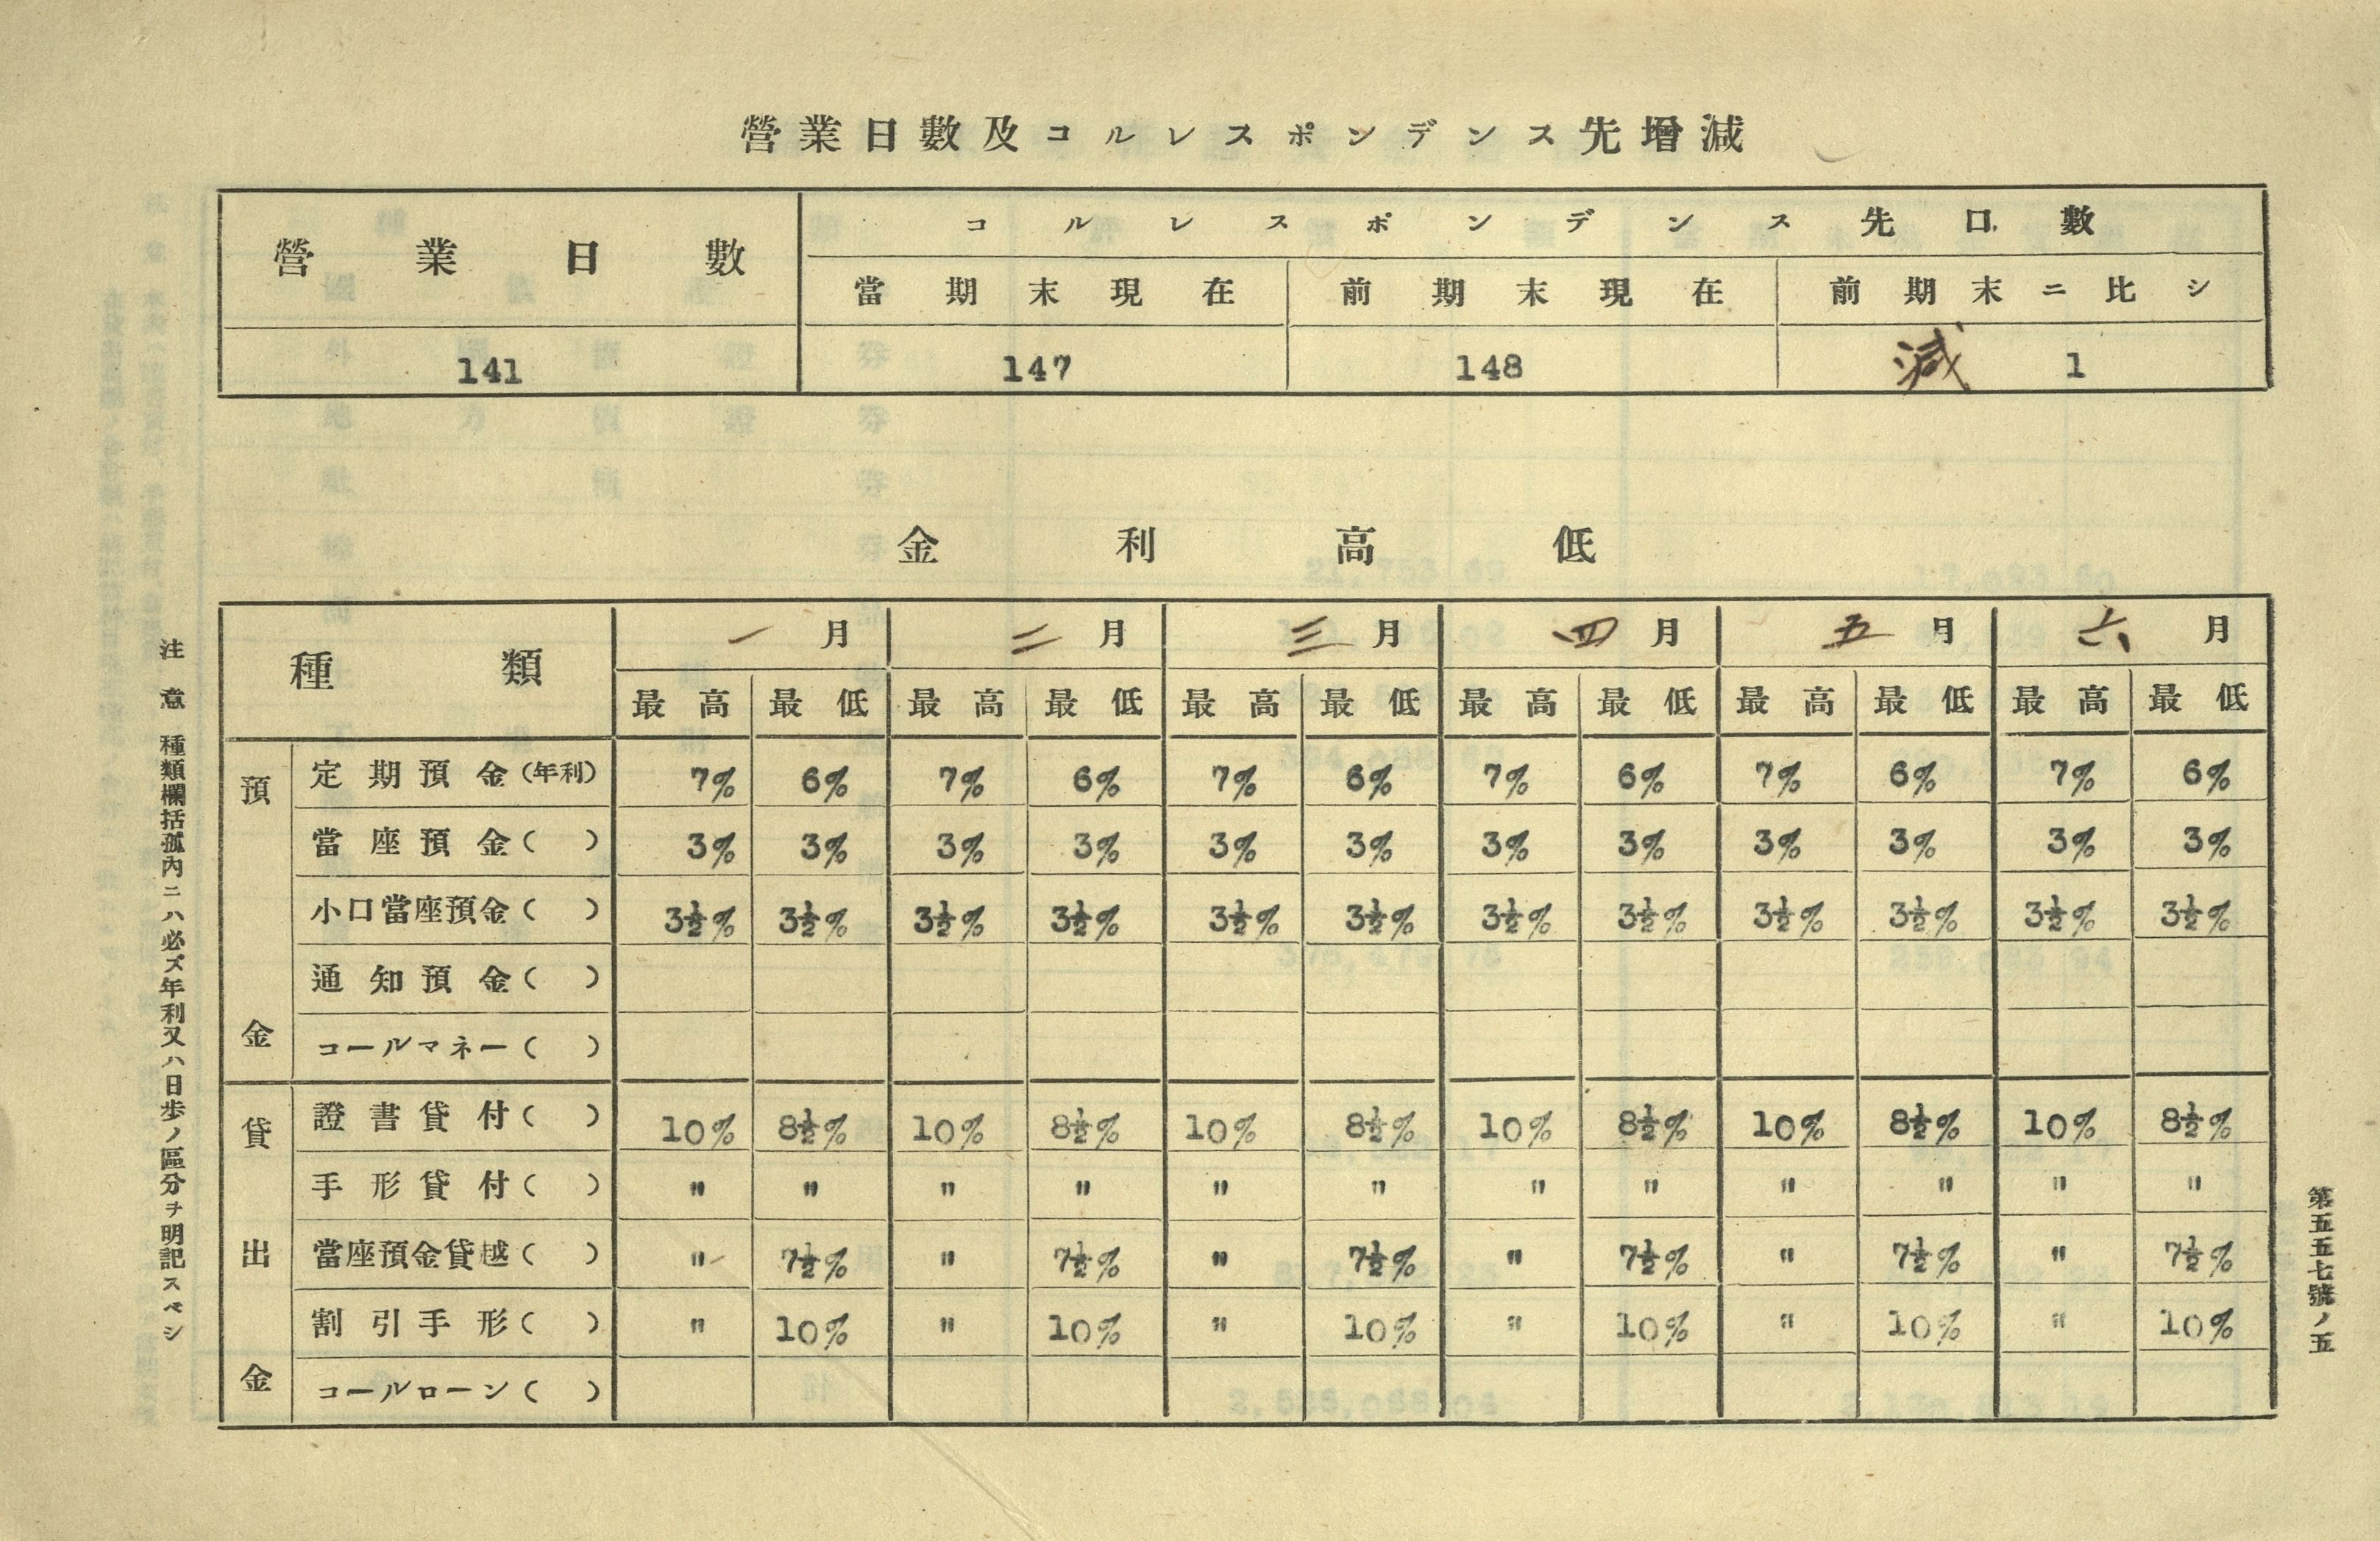 營業日數及コルレスポンデンス先增減
營業日數 コルレスポンデンス先口數
當期末現在 前期末現在 前期末ニ比シ
141 147 148 減 1
金利高低
種類 一月 二月 三月 四月 五月 六月
最高 最低 最高 最低 最高 最低 最高 最低 最高 最低 最高 最低
預金
定期預金(年利) 7% 6% 7% 6% 7% 6% 7% 6% 7% 6% 7% 6%
當座預金( ) 3% 3% 3% 3% 3% 3% 3% 3% 3% 3% 3% 3%
小口當座預金( ) 3½% 3½% 3½% 3½% 3½% 3½% 3½% 3½% 3½% 3½% 3½% 3½%
通知預金( )
コールマネー( )
貸出金
證書貸付( ) 10% 8½% 10% 8½% 10% 8½% 10% 8½% 10% 8½% 10% 8½%
手形貸付( ) " " " " " " " " " " " "
當座預金貸越( ) " 7½% " 7½% " 7½% " 7½% " 7½% " 7½%
割引手形( ) " 10% " 10% " 10% " 10% " 10% " 10%
コールローン( )
注意 種類欄括孤內ニハ必ズ年利又ハ日步ノ區分ヲ明記スベシ
第五五七號ノ五